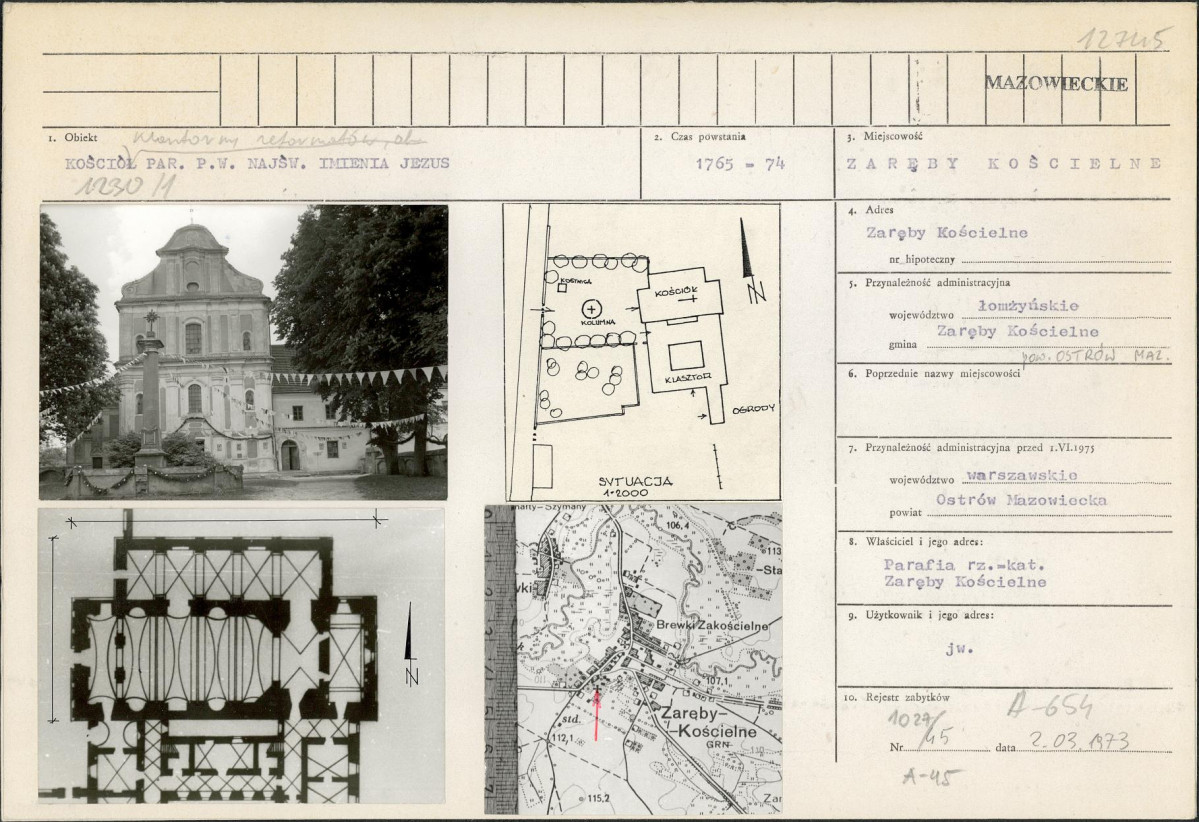 12745
MAZOWIECKIE
1. Obiekt
Klasztorny reformatów, ob.
KOŚCIÓŁ PAR. P.W. NAJŚW. IMIENIA JEZUS
1230/1
2. Czas powstania
1765 - 74
3. Miejscowość
ZARĘBY KOŚCIELNE
4. Adres
Zaręby Kościelne
nr hipoteczny
5. Przynależność administracyjna
województwo łomżyńskie
Zaręby Kościelne
gmina
pow. OSTRÓW MAZ.
6. Poprzednie nazwy miejscowości
7. Przynależność administracyjna przed 1.VI.1975
województwo warszawskie
Ostrów Mazowiecka
powiat
8. Właściciel i jego adres:
Parafia rz.-kat.
Zaręby Kościelne
9. Użytkownik i jego adres:
jw.
10. Rejestr zabytków
A-654
1027/45
Nr data 2.03.1973
A-45
KOSTNICA
KOŚCIÓŁ
KOLUMNA
KLASZTOR
OGRODY
N
SYTUACJA
1:2000
N
106,4
113
-Sta
wki
Brewki Zakościelne
107,1
std.
Zaręby-
-Kościelne
GRN
112,1
110
115,2
Zar